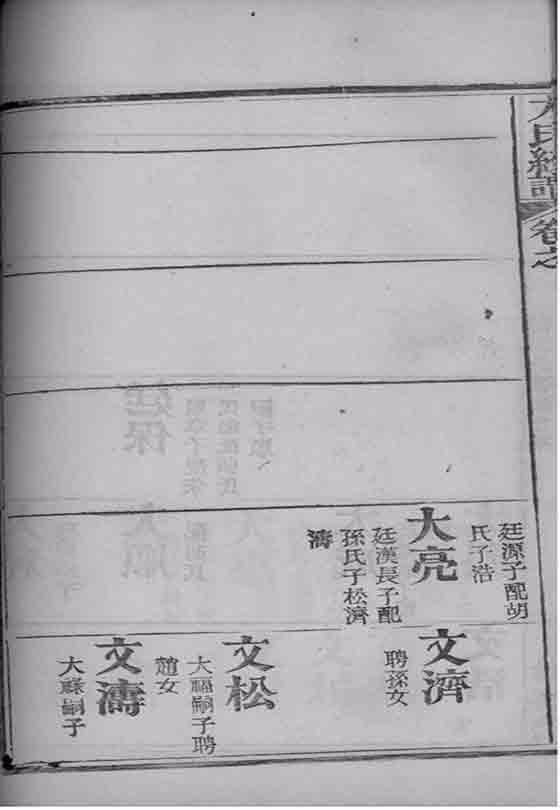 氏經譜
卷之
廷源子配胡
氏子浩
大亮
廷漢長子配
孫氏子松濟
濤
文濟
聘孫女
文松
大福嗣子聘
趙女
文濤
大祿嗣子